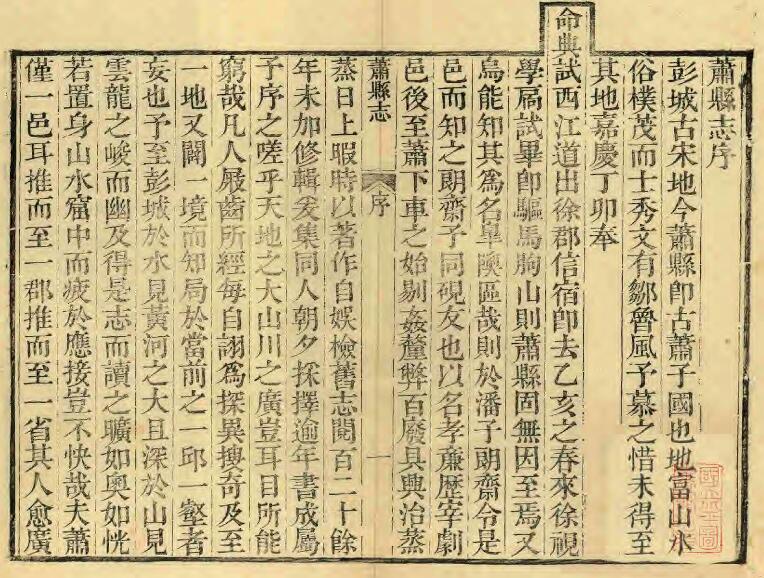 蕭縣志序
彭城古宋地今蕭縣即古蕭子國也地富山水
俗樸茂而士秀文有鄒魯風予慕之惜未得至
其地嘉慶丁卯奉
命典試西江道出徐郡信宿即去乙亥之春來徐視
學扃試畢即驅馬朐山則蕭縣固無因至焉又
烏能知其為名皐隩區哉則於潘子朗齋令是
邑而知之朗齋予同硯友也以名孝廉歷宰劇
邑後至蕭下車之始剔姦釐弊百廢具興治蒸
蕭縣志 序 一
蒸日上暇時以著作自娛檢舊志閱百二十餘
年未加修輯爰集同人朝夕採擇逾年書成屬
予序之嗟乎天地之大山川之廣豈耳目所能
窮哉凡人屐齒所經每自詡為探異搜奇及至
一地又闢一境而知局於當前之一邱一壑者
妄也予至彭城於水見黃河之大且深於山見
雲龍之峻而幽及得是志而讀之曠如奧如恍
若置身山水窟中而疲於應接豈不快哉夫蕭
僅一邑耳推而至一郡推而至一省其人愈廣